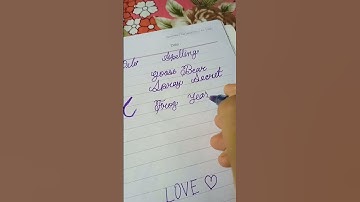 Spelling
Goose Bear
Spray Secret
Frog Yeas
LOVE ♡